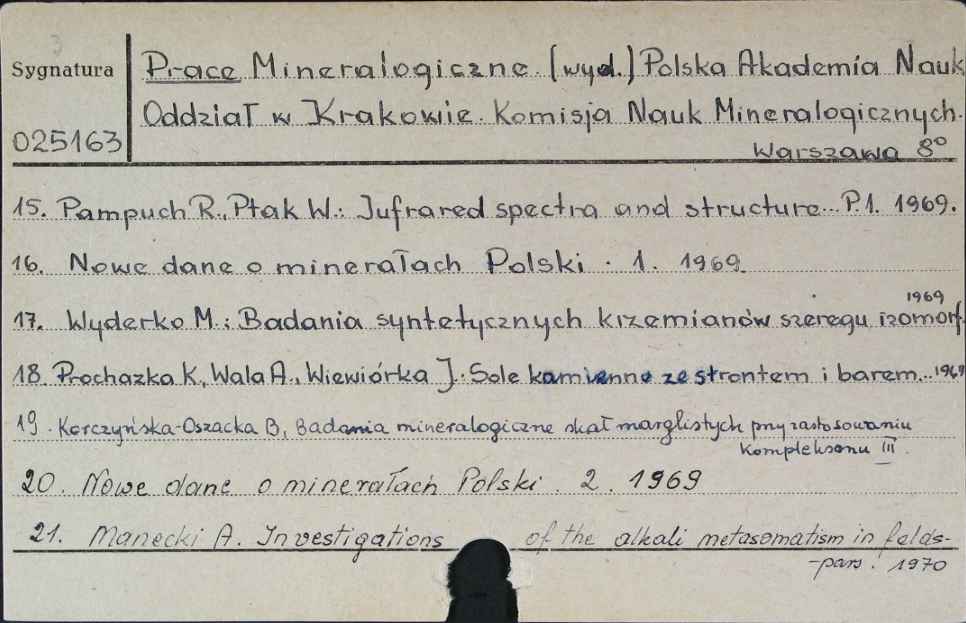 3
Sygnatura
025163
Prace Mineralogiczne. (wyd.) Polska Akademia Nauk
Oddział w Krakowie. Komisja Nauk Mineralogicznych.
Warszawa 8°
15. Pampuch R., Ptak W.: Jufrared spectra and structure... P.1. 1969.
16. Nowe dane o minerałach Polski. 1. 1969.
1969
17. Wyderko M.: Badania syntetycznych krzemianów szeregu izomorf.
18. Prochazka K., Wala A., Wiewiórka J. Sole kamienne ze strontem i barem... 1969
19. Korczyńska-Oszacka B., Badania mineralogiczne skał marglistych przy zastosowaniu
Kompleksonu III.
20. Nowe dane o minerałach Polski. 2. 1969
21. Manecki A. Investigations of the alkali metasomatism in felds-
-pars. 1970